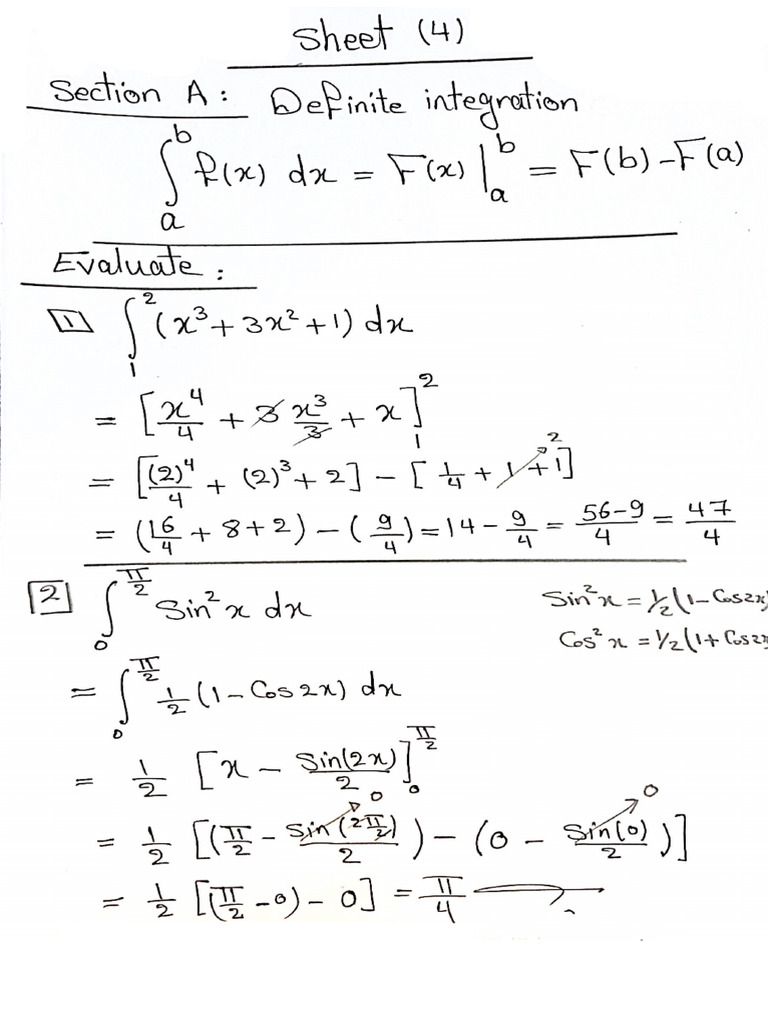 Sheet (4)
Section A: Definite integration
∫_a^b f(x) dx = F(x) |_a^b = F(b) - F(a)
Evaluate:
1 ∫_1^2 (x³ + 3x² + 1) dx
= [x⁴/4 + 3 x³/3 + x]_1^2
= [(2)⁴/4 + (2)³ + 2] - [1/4 + 1 + 1] 2
= (16/4 + 8 + 2) - (9/4) = 14 - 9/4 = 56-9/4 = 47/4
2 ∫_0^{π/2} Sin²x dx
Sin²x = 1/2 (1 - Cos2x)
Cos²x = 1/2 (1 + Cos2x
= ∫_0^{π/2} 1/2 (1 - Cos 2x) dx
= 1/2 [x - Sin(2x)/2]_0^{π/2}
= 1/2 [(π/2 - Sin(2π/2)/2 0) - (0 - Sin(0)/2 0)]
= 1/2 [(π/2 - 0) - 0] = π/4